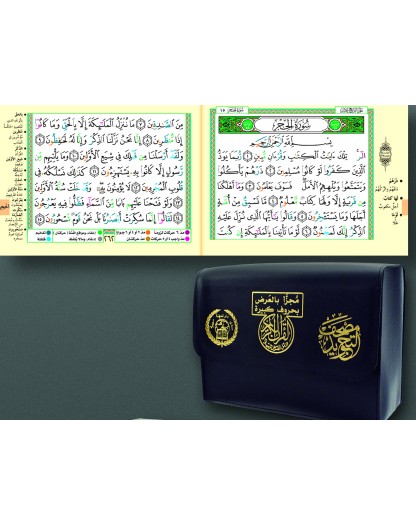 سُورَةُ الحِجْرِ
بِسْمِ ٱللَّهِ ٱلرَّحْمَٰنِ ٱلرَّحِيمِ
الٓر تِلْكَ ءَايَٰتُ ٱلْكِتَٰبِ وَقُرْءَانٍ مُّبِينٍ ١ رُّبَمَا يَوَدُّ
ٱلَّذِينَ كَفَرُوا۟ لَوْ كَانُوا۟ مُسْلِمِينَ ٢ ذَرْهُمْ يَأْكُلُوا۟
وَيَتَمَتَّعُوا۟ وَيُلْهِهِمُ ٱلْأَمَلُ فَسَوْفَ يَعْلَمُونَ ٣ وَمَآ أَهْلَكْنَا
مِن قَرْيَةٍ إِلَّا وَلَهَا كِتَابٌ مَّعْلُومٌ ٤ مَّا تَسْبِقُ مِنْ أُمَّةٍ
أَجَلَهَا وَمَا يَسْتَـْٔخِرُونَ ٥ وَقَالُوا۟ يَٰٓأَيُّهَا ٱلَّذِى نُزِّلَ عَلَيْهِ
ٱلذِّكْرُ إِنَّكَ لَمَجْنُونٌ ٦ لَّوْ مَا تَأْتِينَا بِٱلْمَلَٰٓئِكَةِ إِن كُنتَ
مِنَ ٱلصَّٰدِقِينَ ٧ مَا نُنَزِّلُ ٱلْمَلَٰٓئِكَةَ إِلَّا بِٱلْحَقِّ وَمَا كَانُوٓا۟
إِذًا مُّنظَرِينَ ٨ إِنَّا نَحْنُ نَزَّلْنَا ٱلذِّكْرَ وَإِنَّا لَهُۥ لَحَٰفِظُونَ ٩
وَلَقَدْ أَرْسَلْنَا مِن قَبْلِكَ فِى شِيَعِ ٱلْأَوَّلِينَ ١٠ وَمَا يَأْتِيهِم مِّن
رَّسُولٍ إِلَّا كَانُوا۟ بِهِۦ يَسْتَهْزِءُونَ ١١ كَذَٰلِكَ نَسْلُكُهُۥ فِى
قُلُوبِ ٱلْمُجْرِمِينَ ١٢ لَا يُؤْمِنُونَ بِهِۦ وَقَدْ خَلَتْ سُنَّةُ ٱلْأَوَّلِينَ
١٣ وَلَوْ فَتَحْنَا عَلَيْهِم بَابًا مِّنَ ٱلسَّمَآءِ فَظَلُّوا۟ فِيهِ يَعْرُجُونَ
١٤ لَقَالُوٓا۟ إِنَّمَا سُكِّرَتْ أَبْصَٰرُنَا بَلْ نَحْنُ قَوْمٌ مَّسْحُورُونَ ١٥
٢٦٢
مُجزّأ بالعَرض
بحروف كبيرة
القرآن الكريم
مصحف التجويد